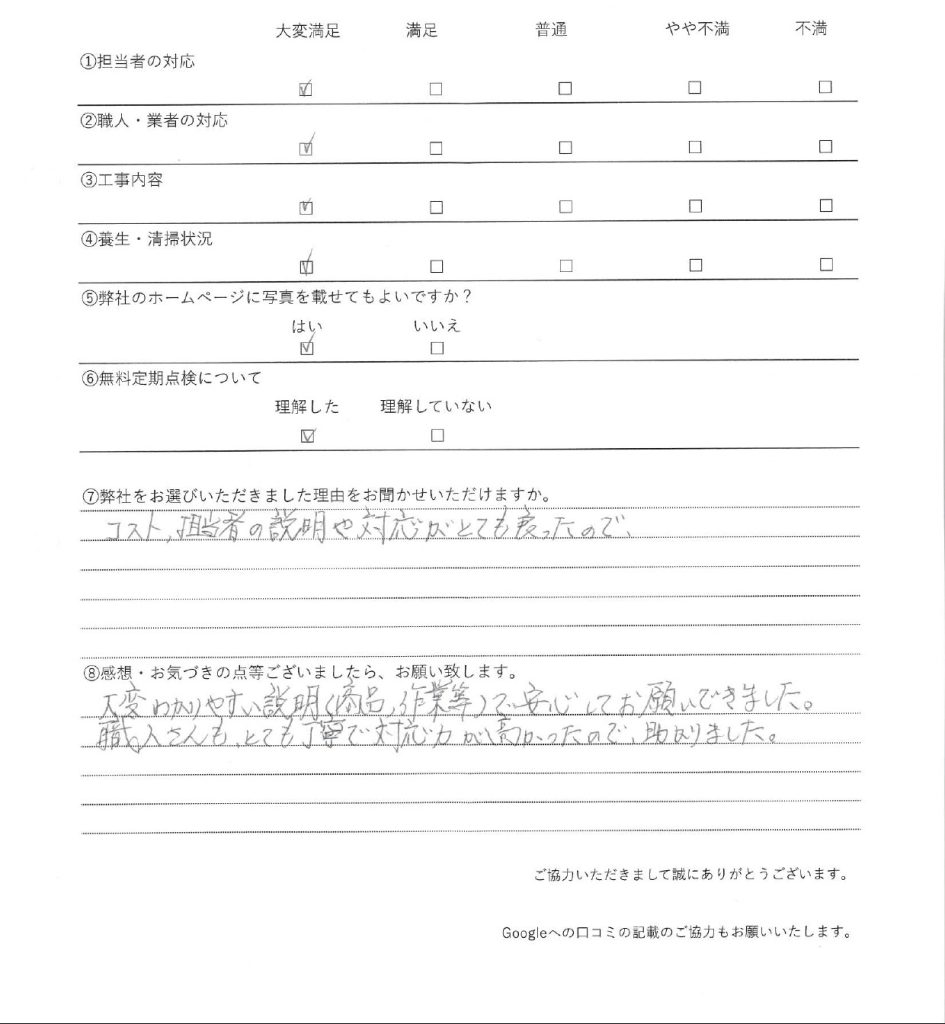 大変満足 満足 普通 やや不満 不満
①担当者の対応
☑ ☐ ☐ ☐ ☐
②職人・業者の対応
☑ ☐ ☐ ☐ ☐
③工事内容
☑ ☐ ☐ ☐ ☐
④養生・清掃状況
☑ ☐ ☐ ☐ ☐
⑤弊社のホームページに写真を載せてもよいですか?
はい いいえ
☑ ☐
⑥無料定期点検について
理解した 理解していない
☑ ☐
⑦弊社をお選びいただきました理由をお聞かせいただけますか。
コスト,担当者の説明や対応がとても良ったので、
⑧感想・お気づきの点等ございましたら、お願い致します。
大変わかりやすい説明(商品,作業等)で安心してお願いできました。
職人さんも、とても丁寧で対応力が高かったので、助かりました。
ご協力いただきまして誠にありがとうございます。
Googleへの口コミの記載のご協力もお願いいたします。